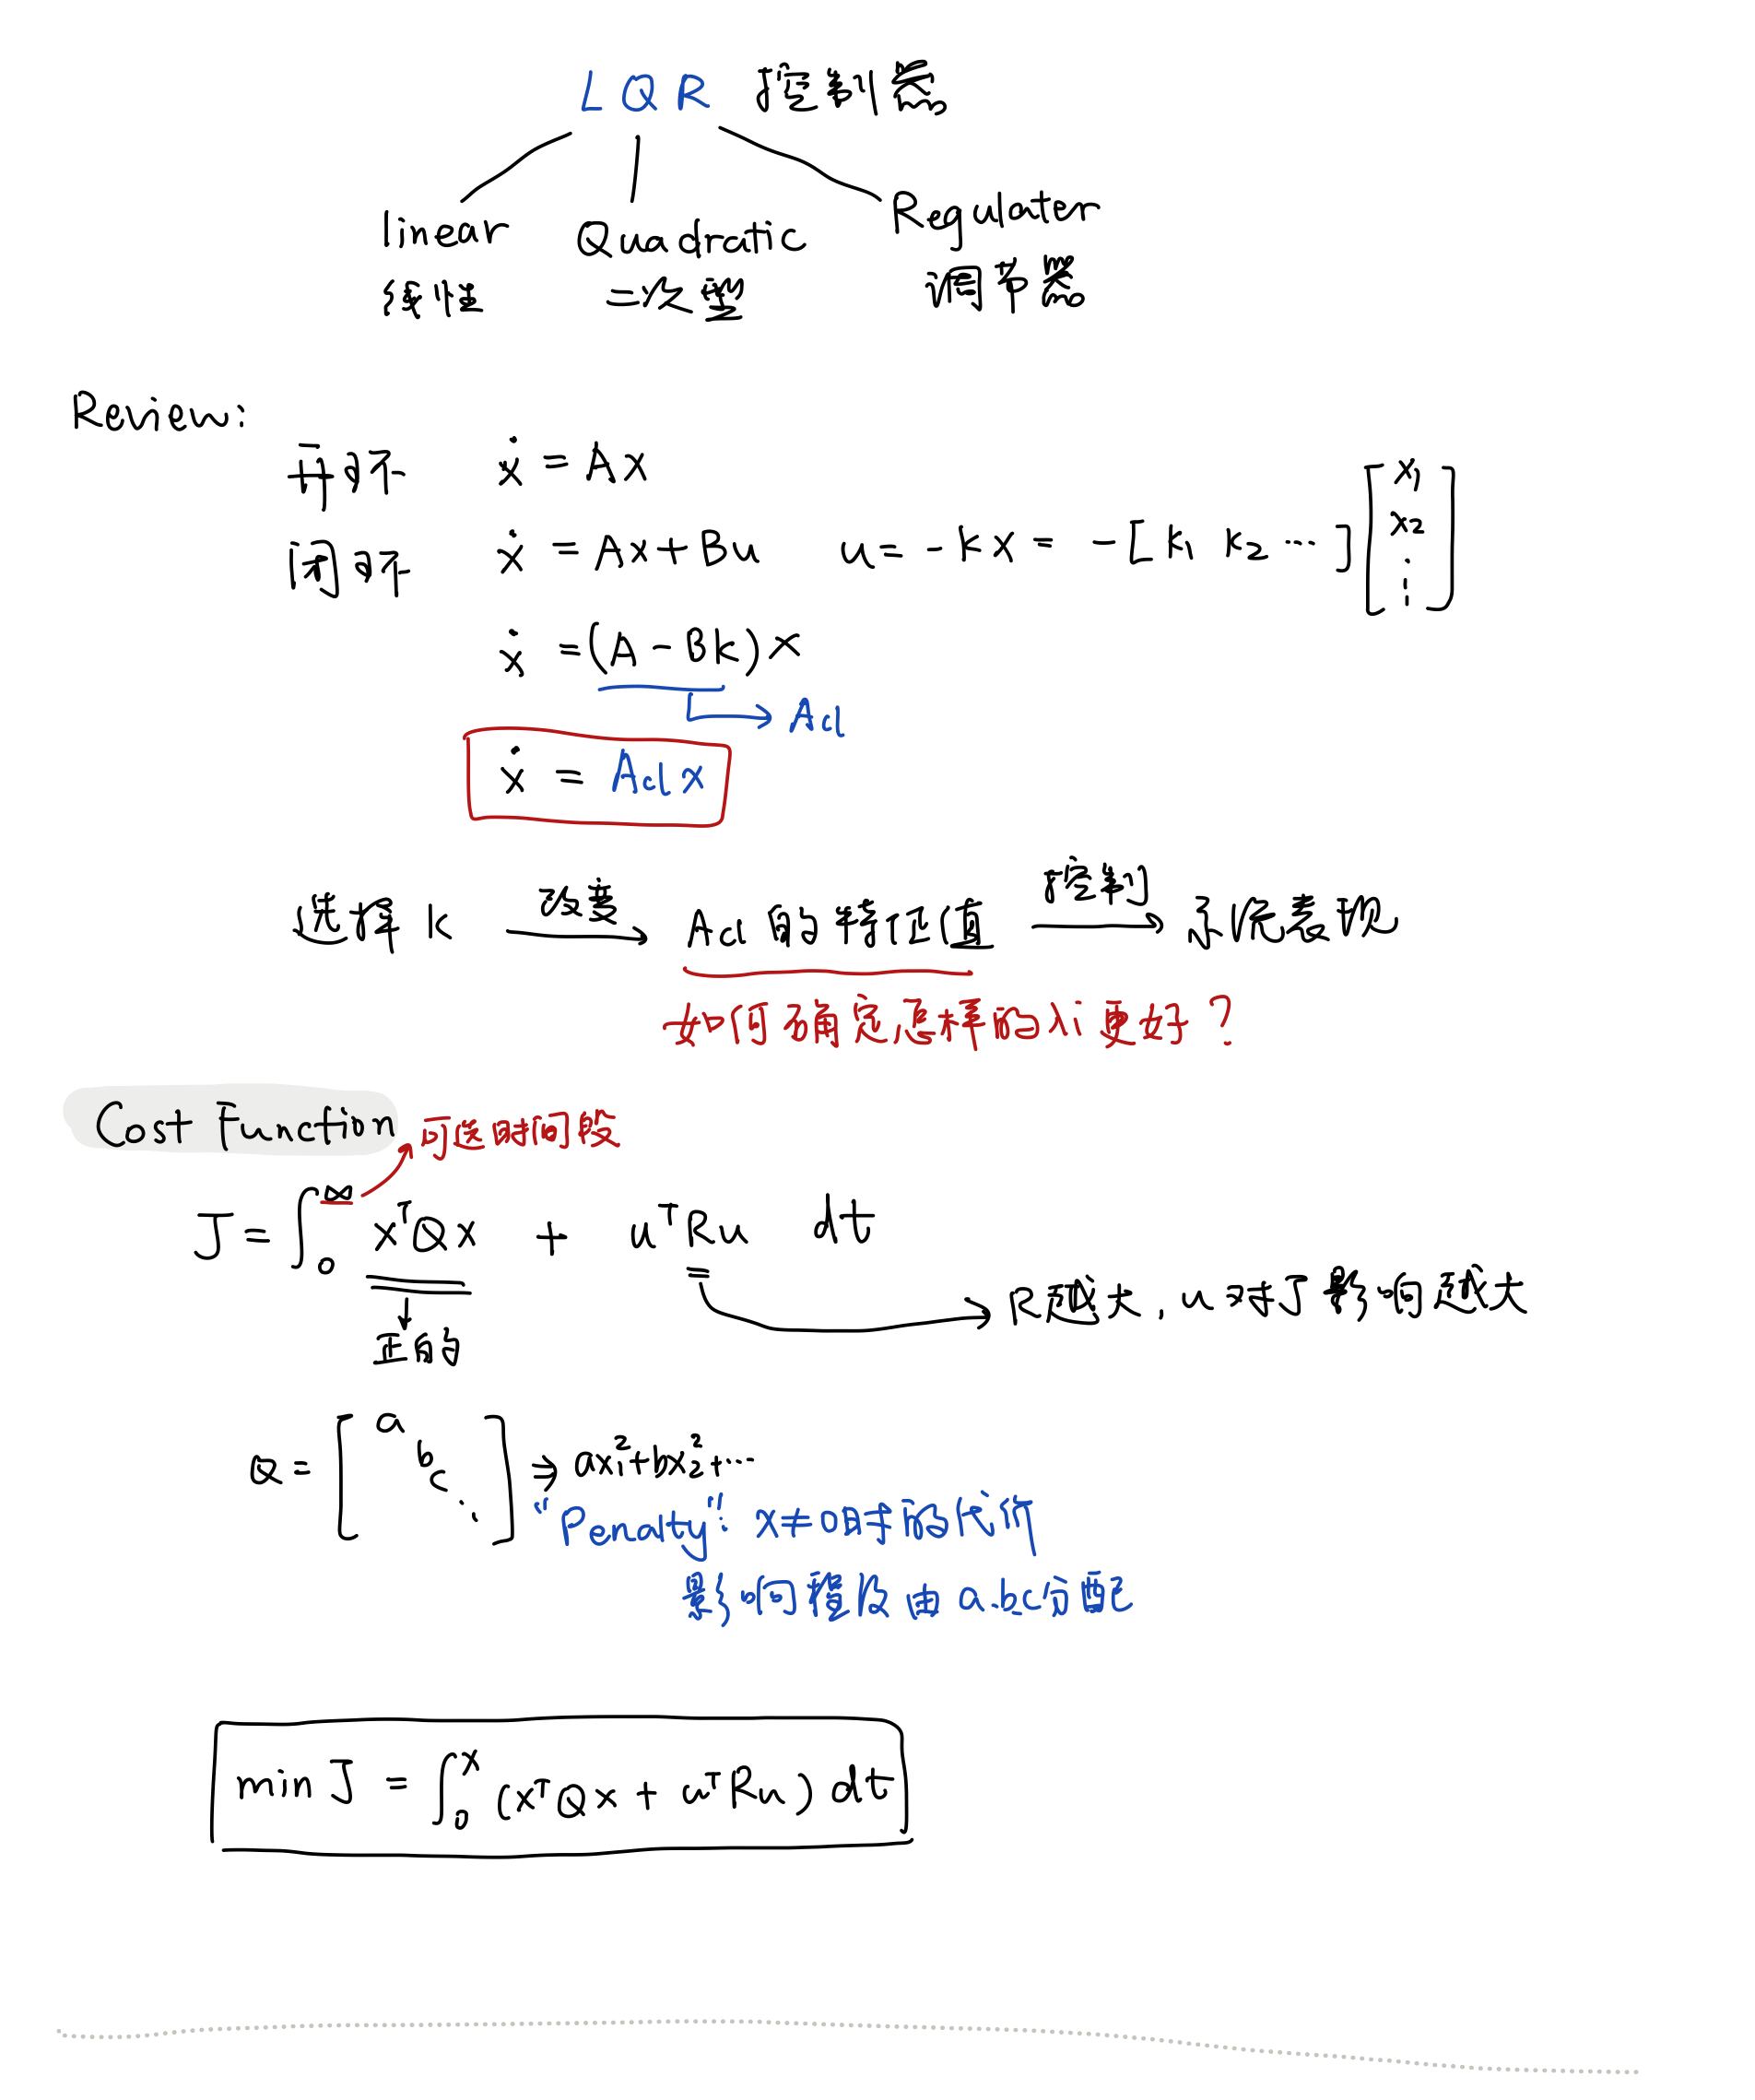 LQR 控制器
linear Quadratic Regulator
线性 二次型 调节器
Review:
开环 ẋ = Ax
闭环 ẋ = Ax+Bu u= -kx = -[k₁ k₂ ···] [x₁ x₂ ⋮]
ẋ =(A-Bk)x
→ Acl
ẋ = Acl x
选择k 改变→ Acl 的特征值 控制→ 系统表现
如何确定怎样的λi更好？
Cost Function
可选时间段
J = ∫₀^∞ xᵀQx + uᵀRu dt
R越大, u对J影响越大
正的
Q = [a b c ⋱] ⇒ ax₁²+bx₂²+···
"Penalty": x≠0时的代价
影响程度由a.b.c分配
min J = ∫₀ (xᵀQx + uᵀRu) dt